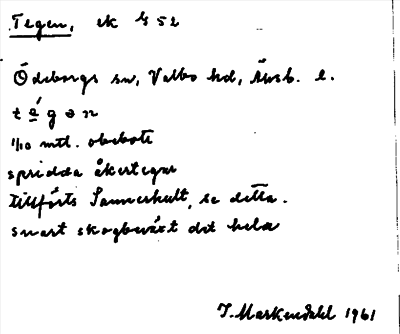 Tegen, ek G 52
Ödeborgs sn, Valbo hd, Älvsb. l.
t a´ g ə n
1/10 mtl. obebott
spridda åkertegar
tillförts Sannerhult, se detta.
snart skogbeväxt det hela
J. Markendahl 1961